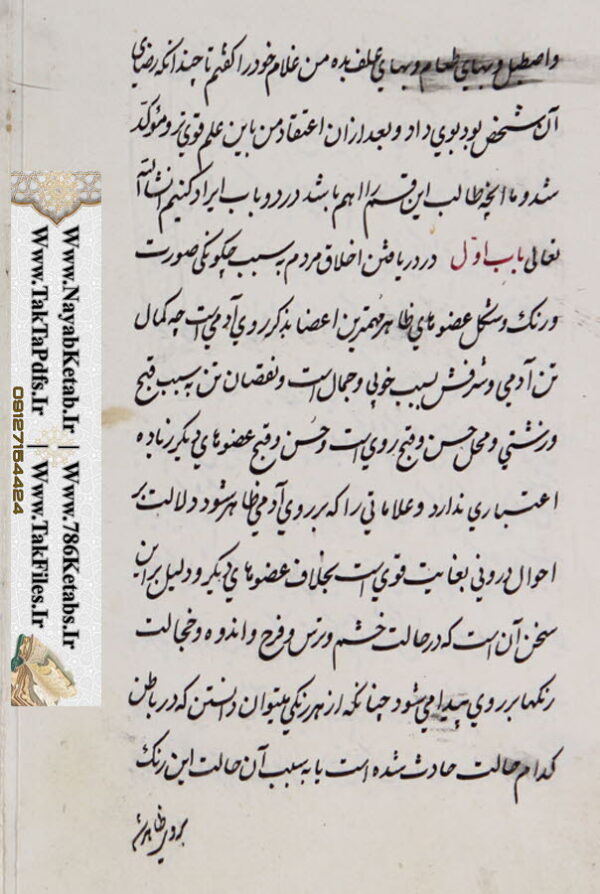 واصطبل وبهاي طعام وبهاي علف بده من غلام خود را گفتم تا چندانكه رضاي
آن شخص بود بوي داد و بعد ازان اعتقاد من باين علم قوي تر و مؤكد
شد و ما انچه طالب اين قسم را اهم باشد در دو باب ايراد كنيم انشاالله
تعالي باب اول در دريافتن اخلاق مردم بسبب چگونگي صورت
و رنك و شكل عضوهاي ظاهر مهمترين اعضا بذكر روي آدمي است چه كمال
تن آدمي و شرفش بسبب خوبي و جمال است و نقصان تن بسبب قبح
و زشتي و محل حسن و قبح روي است و حسن و قبح عضوهاي ديكر زياده
اعتباري ندارد و علاماتي را كه بر روي آدمي ظاهر شود دلالت بر
احوال دروني بغايت قوي است بخلاف عضوهاي ديكر و دليل برين
سخن آن است كه در حالت خشم و ترس و فرح و اندوه و خجالت
رنكها بر روي پيدا مي شود چنانكه از هر رنكي ميتوان دانستن كه در باطن
كدام حالت حادث شده است يا بسبب آن حالت اين رنك
بروي ظاهر
Www.NayabKetab.Ir | Www.786Ketabs.Ir
Www.TakTaPdfs.Ir | Www.TakFiles.Ir
09127154424